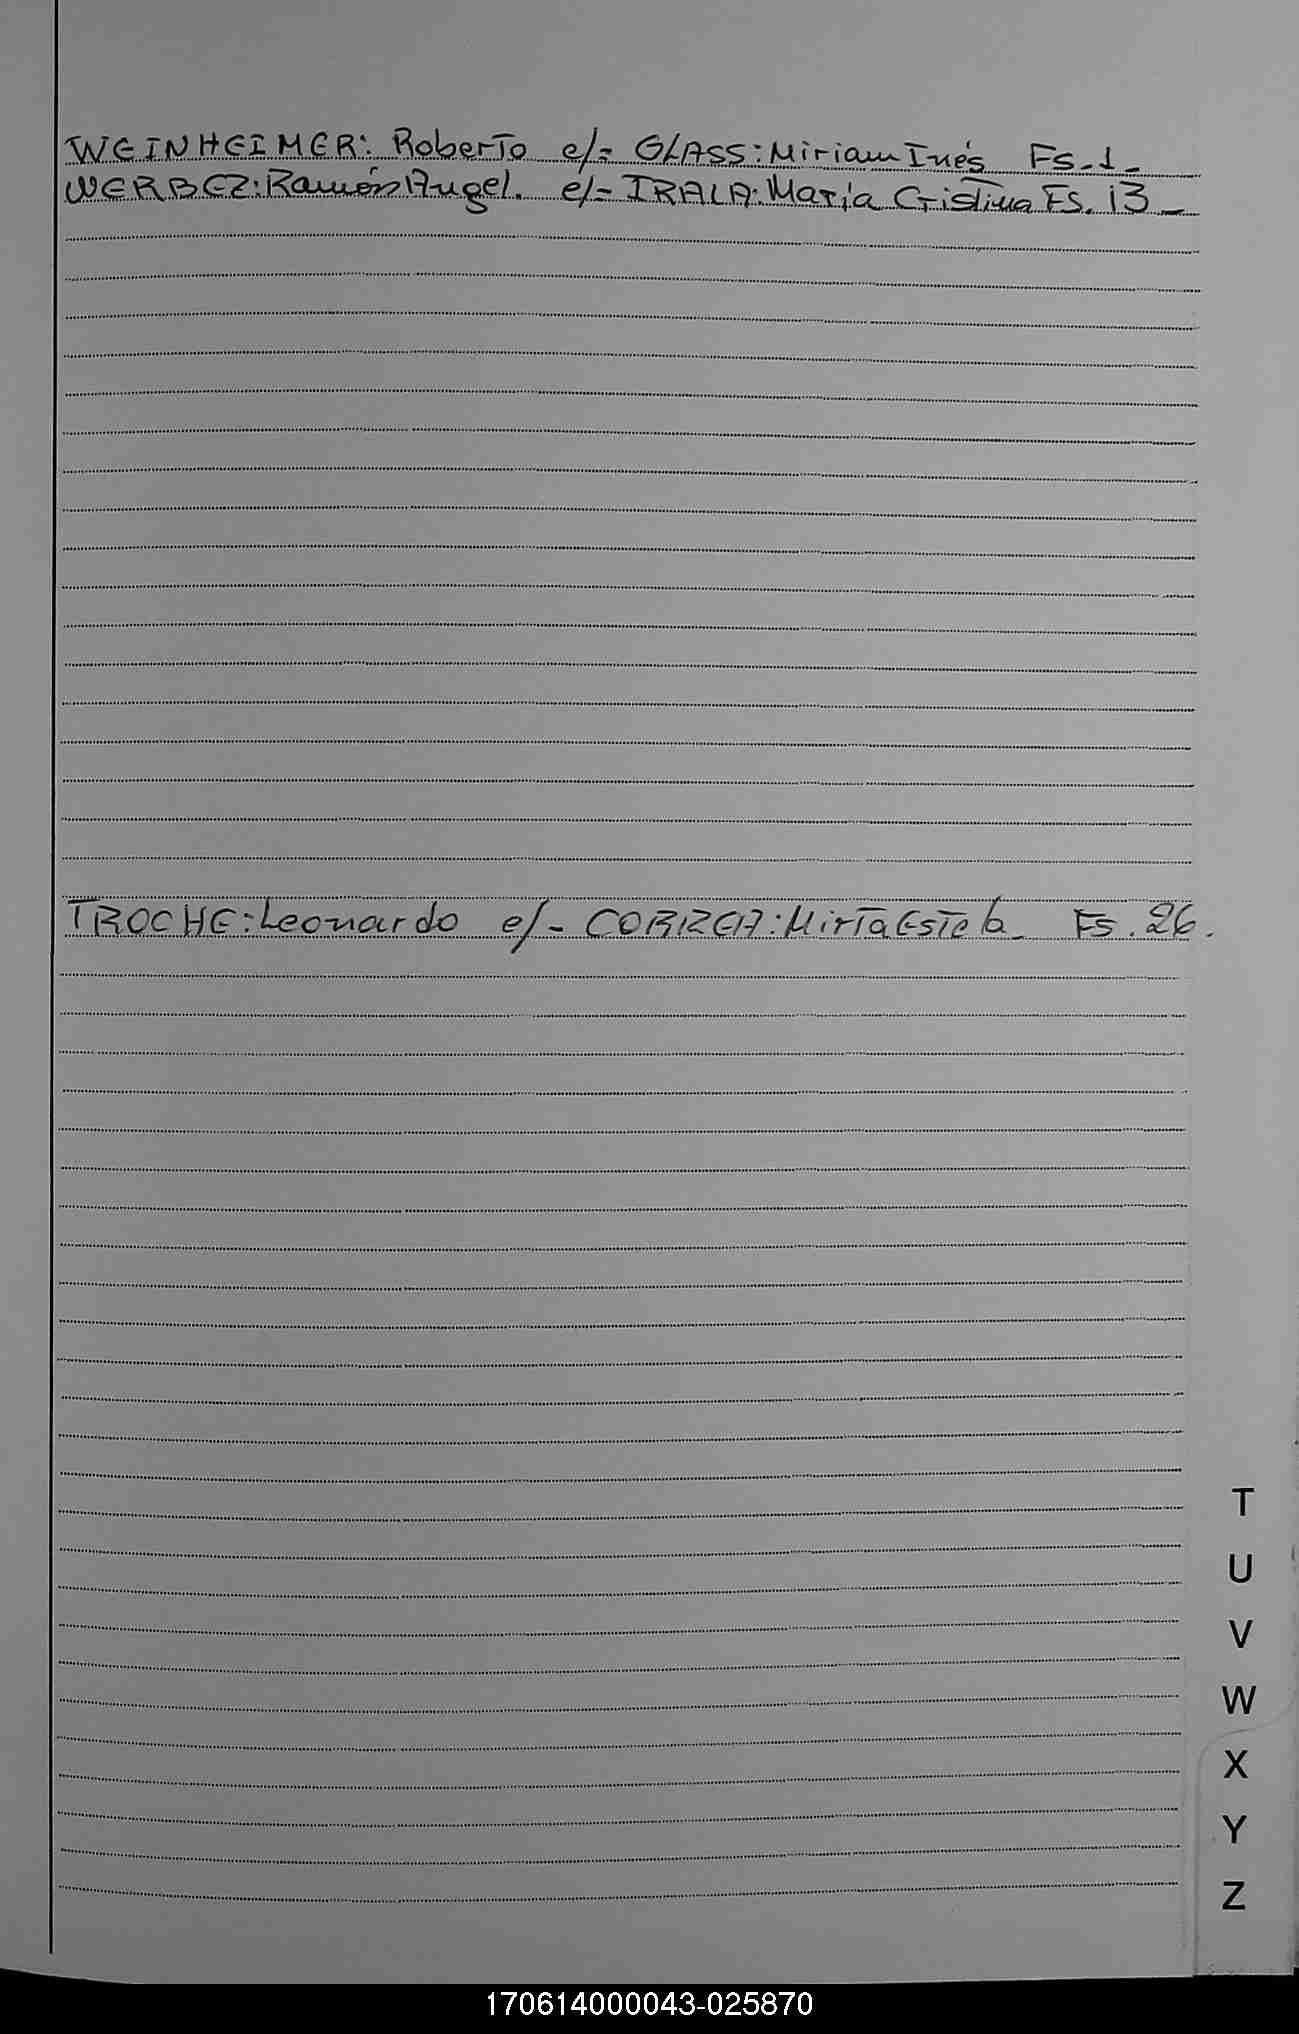 WEINHEIMER: Roberto e/- GLASS: Miriam Inés Fs-1-
WERBEZ: Ramón Angel. e/- IRALA: María Cristina Fs. 13-
TROCHE: Leonardo e/- CORREA: Mirta Estela Fs. 26.
T
U
V
W
X
Y
Z
170614000043-025870